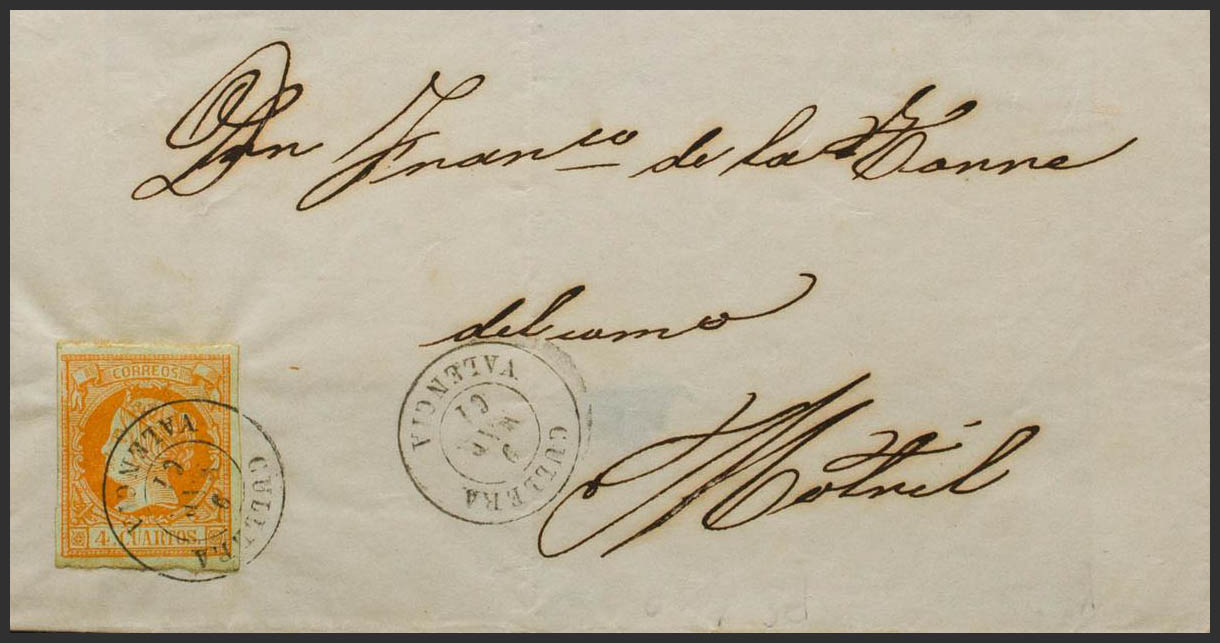 Don Franco de la Torre
del comº
Motril
CORREOS
4 CUARTOS.
CULLERA
VALENCIA
CULLERA
VALENCIA